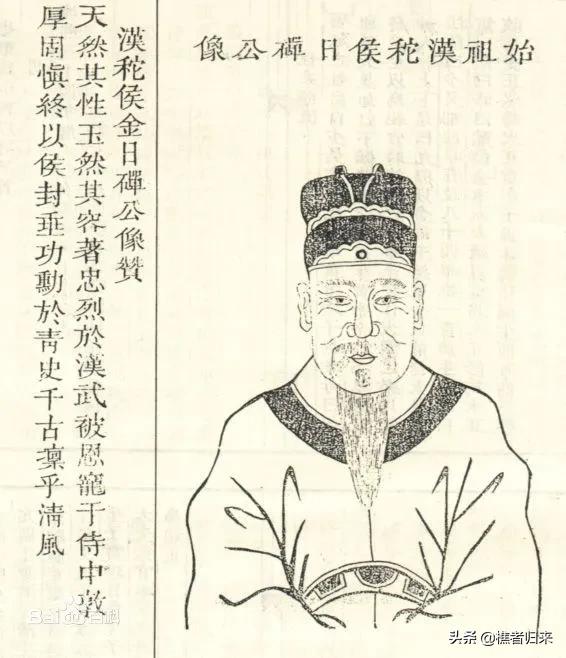 始祖漢秺侯日磾公像
漢秺侯金日磾公像贊
天然其性玉然其容著忠烈於漢武被恩寵于侍中敦
厚固慎終以侯封垂功勳於青史千古凜乎清風
Bai百科
头条 @樵者归来